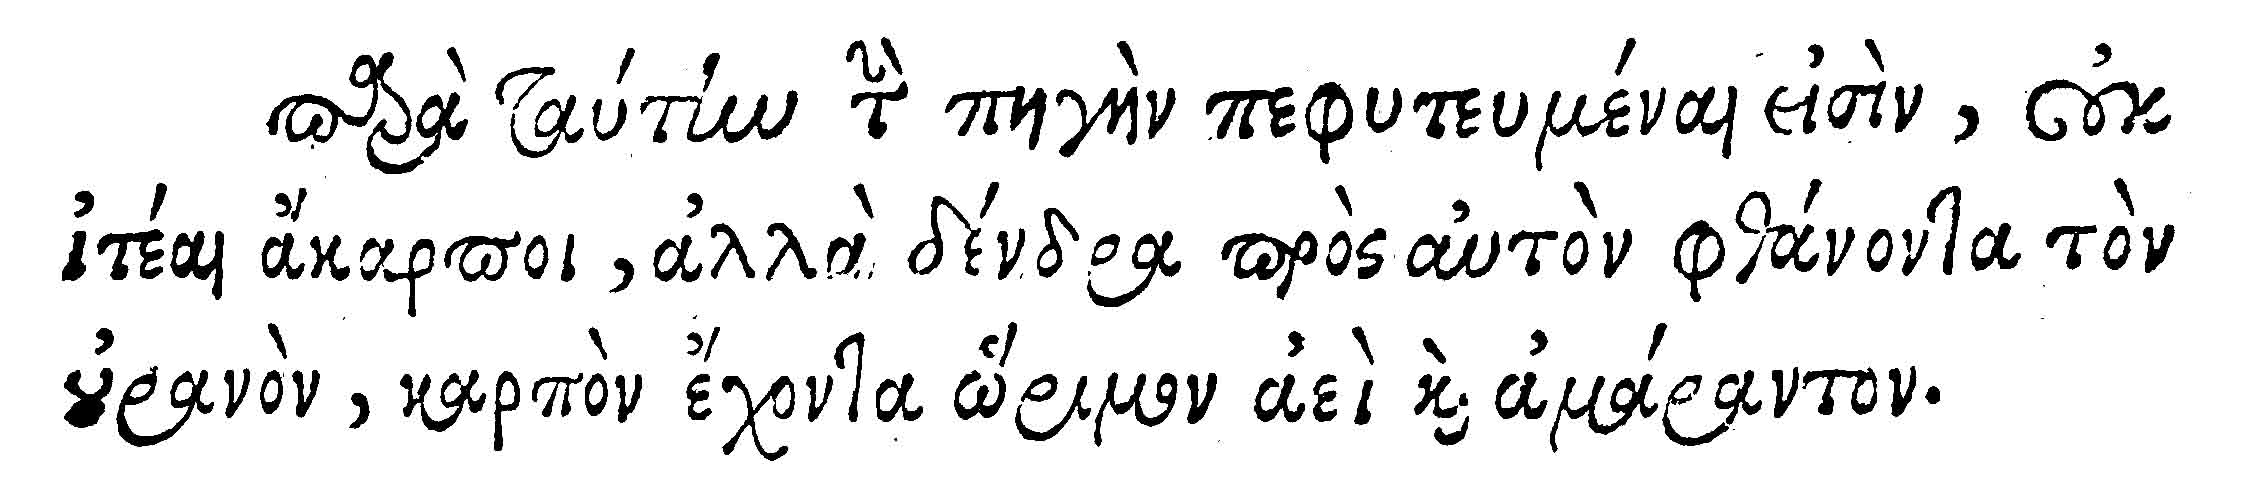 παρὰ ταύτην τὴν πηγὴν πεφυτευμέναι εἰσὶν, οὐκ
ἰτέαι ἄκαρποι, ἀλλὰ δένδρα πρὸς αὐτὸν φθάνοντα τὸν
οὐρανὸν, καρπὸν ἔχοντα ὥριμον ἀεὶ καὶ ἀμάραντον.